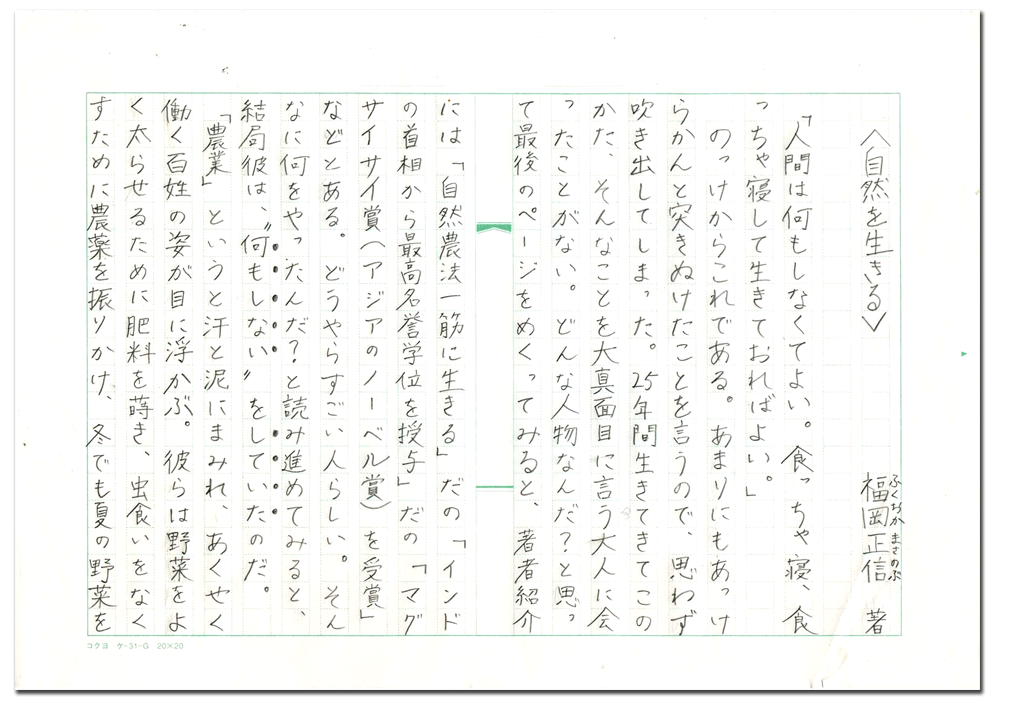 〈自然を生きる〉　福岡正信　著
ふくおか　まさのぶ
「人間は何もしなくてよい。食っちゃ寝、食
っちゃ寝して生きておればよい。」
のっけからこれである。あまりにもあっけ
らかんと突きぬけたことを言うので、思わず
吹き出してしまった。25年間生きてきてこの
かた、そんなことを大真面目に言う大人に会
ったことがない。どんな人物なんだ？と思っ
て最後のページをめくってみると、著者紹介
には「自然農法一筋に生きる」だの「インド
の首相から最高名誉学位を授与」だの「マグ
サイサイ賞（アジアのノーベル賞）を受賞」
などとある。どうやらすごい人らしい。そん
なに何をやったんだ？と読み進めてみると、
結局彼は、〝何もしない〟をしていたのだ。
「農業」というと汗と泥にまみれ、あくせく
働く百姓の姿が目に浮かぶ。彼らは野菜をよ
く太らせるために肥料を蒔き、虫食いをなく
すために農薬を振りかけ、冬でも夏の野菜を
コクヨ　ケ-31-G　20×20